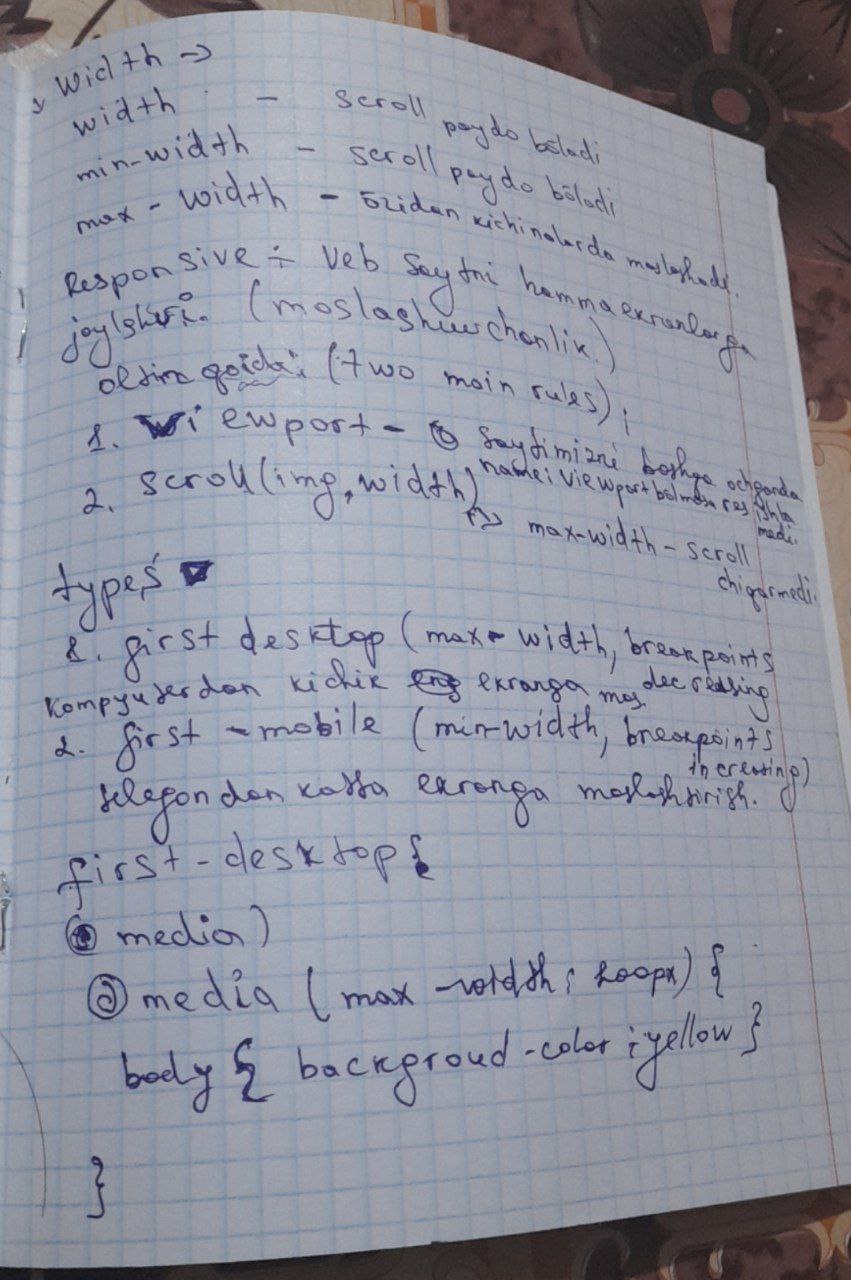 width →
width - scroll paydo bo̅ladi
min-width - scroll paydo bo̅ladi
max - width - o̅zidan kichinalarda moslashadi.
Responsive ÷ Veb saytni hamma ekranlarga
joylshuri. (moslashuvchanlik.)
oltin qoida: (two main rules);
1. viewport - saytimizni boshqa ochganda
name: viewport bo̅lmasa res ishla
medi.
2. scroll (img, width)
↳> max-width - scroll
chiqarmedi.
types
1. first desktop (max-width, breakpoints
decreasing
kompyuterdan kichik ekranga mos.
2. first - mobile (min-width, breakpoints
increasing)
telefondan katta ekranga moslashtirish.
first-desktop {
media)
@media (max-width: px) {
body { backgroud-color: yellow }
}